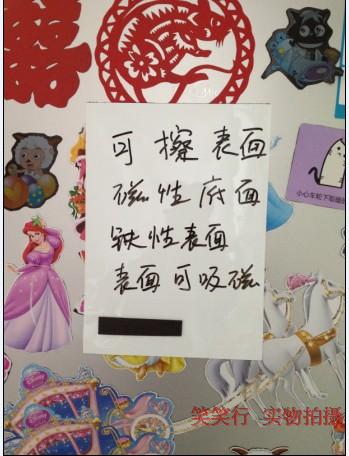 可擦表面
磁性底面
铁性表面
表面可吸磁
小心车轮下取暖的
笑笑行 实物拍摄